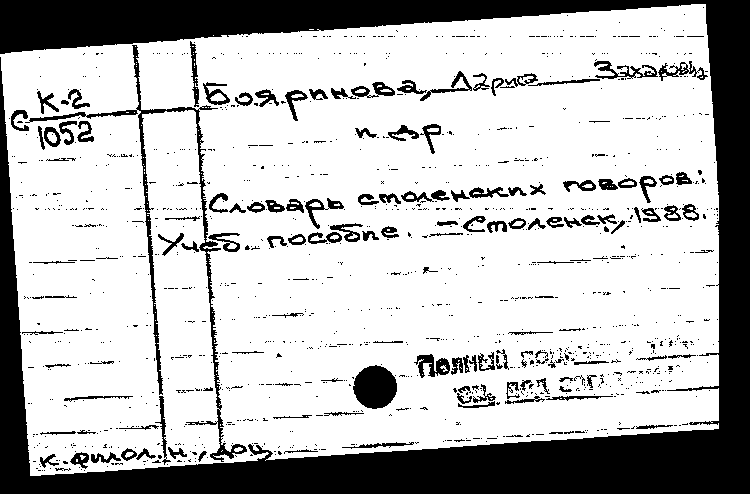 Бояринова, Лариса Захаровна
С К-2
1052
и др.
Словарь смоленских говоров:
Учеб. пособие. - Смоленск, 1988.
Полный
к. филол. н., доц.